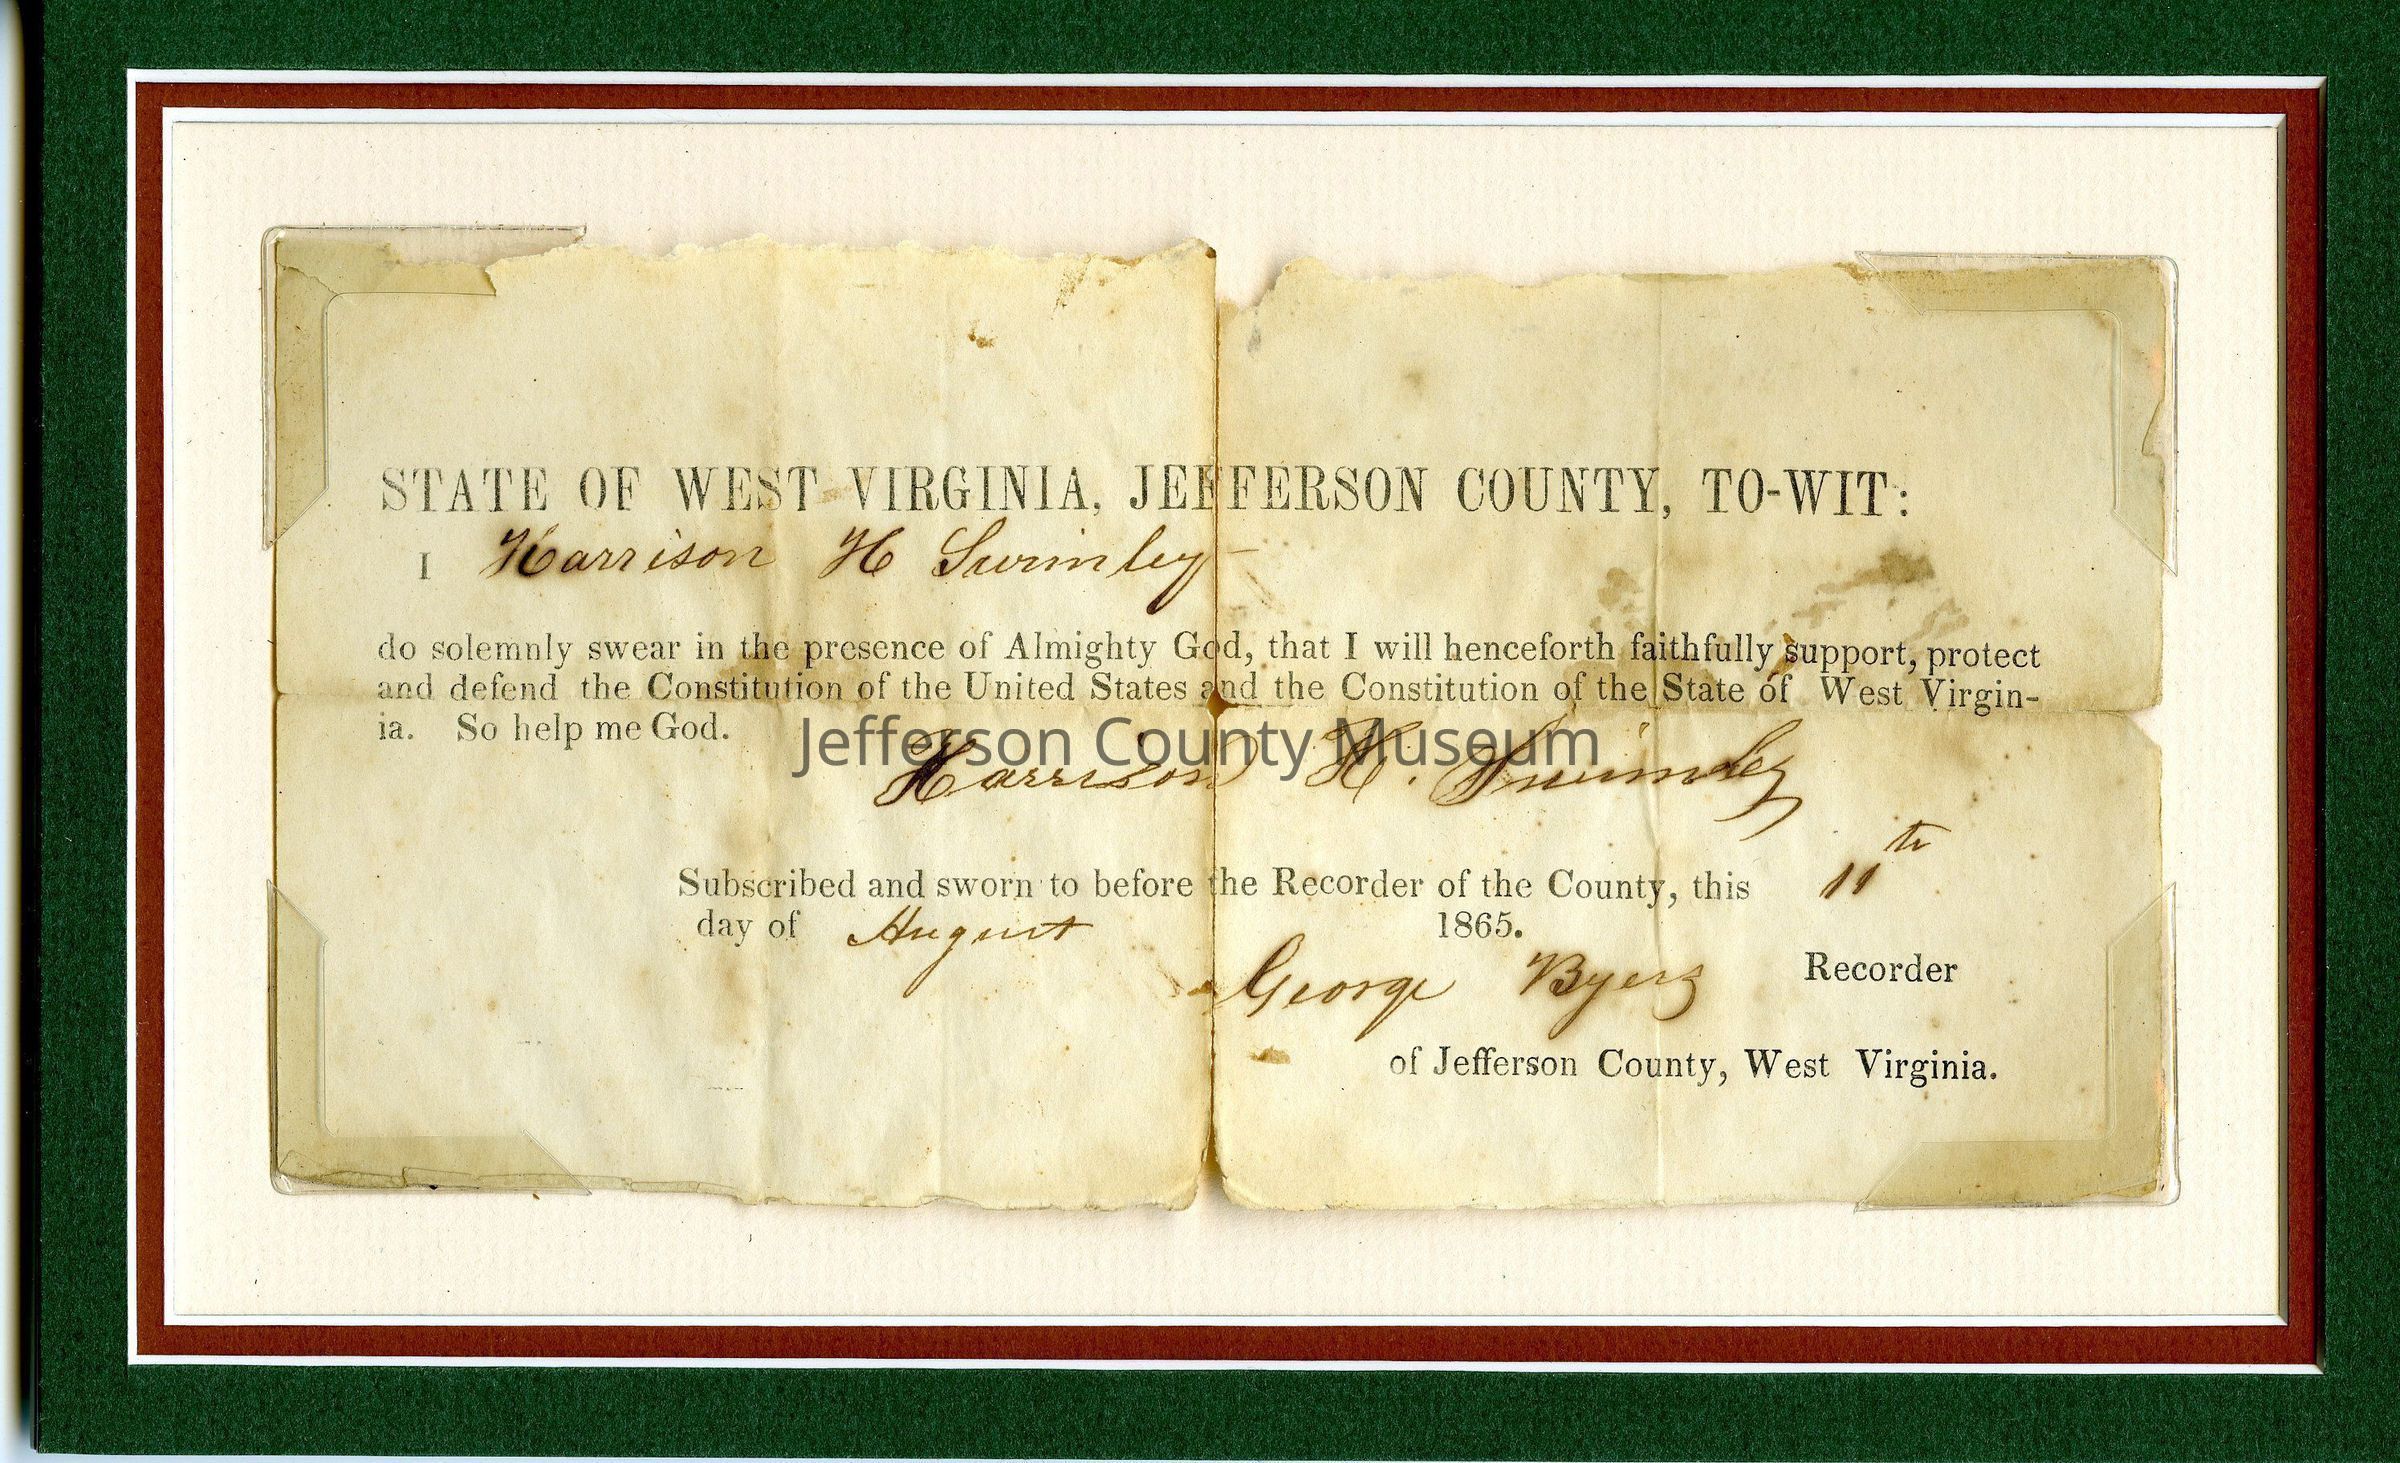 STATE OF WEST VIRGINIA, JEFFERSON COUNTY, TO-WIT:
I Harrison H Swimley
do solemnly swear in the presence of Almighty God, that I will henceforth faithfully support, protect
and defend the Constitution of the United States and the Constitution of the State of West Virgin-
ia. So help me God.
Jefferson County Museum
Harrison H. Swimley
Subscribed and sworn to before the Recorder of the County, this 11th
day of August 1865.
George Byers Recorder
of Jefferson County, West Virginia.